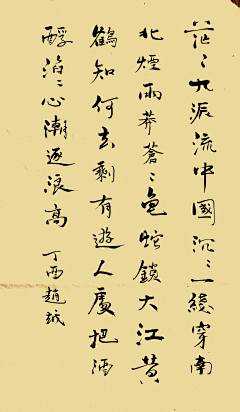 茫〻九派流中國沉〻一綫穿南
北煙雨莽蒼〻龜蛇鎖大江黄
鶴知何去剩有遊人處把酒
酹滔〻心潮逐浪高 丁酉趙越